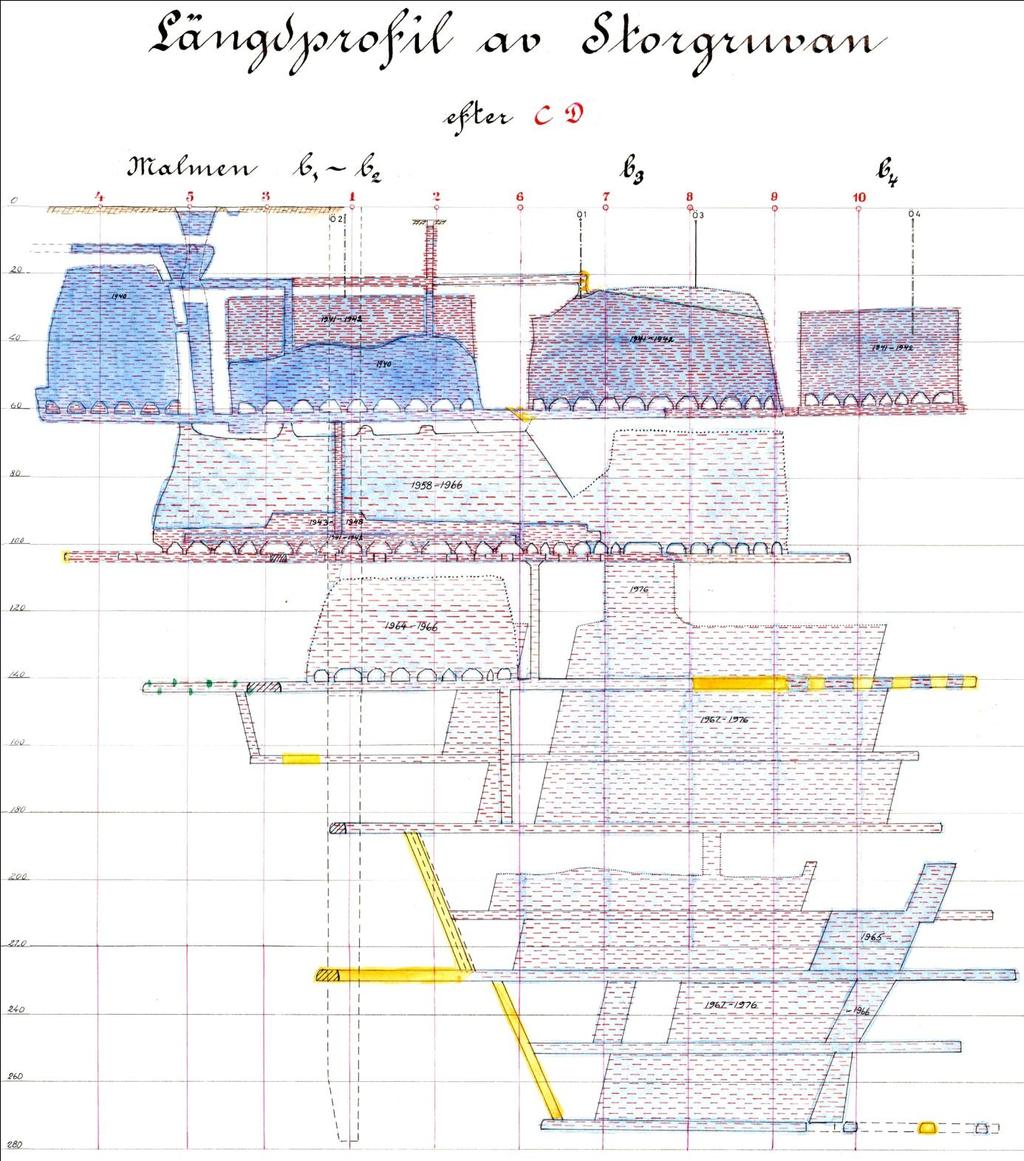 Längdprofil av Storgruvan
efter C D
Malmen b₁ – b₂ b₃ b₄
0 4 5 3 1 2 6 7 8 9 10
02 01 03 04
20
1940 1941-1942
40 1940 1941-1942 1941-1942
60
80 1958-1966
1943- 1948
1941-1942
100
1976
120
1964-1966
140
1962-1976
160
180
200
1965-
220
1962-1976
240 -1966
260
280